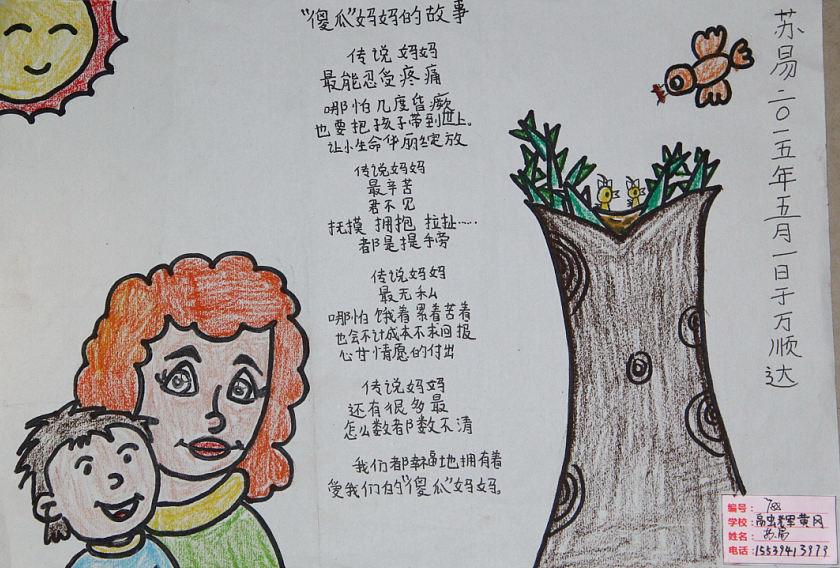 “傻瓜”妈妈的故事
传说妈妈
最能忍受疼痛
哪怕几度昏癞
也要把孩子带到世上。
让小生命华丽绽放
传说妈妈
最辛苦
君不见
抚摸 拥抱 拉扯……
都是提手旁
传说妈妈
最无私
哪怕饿着累着苦着
也会不计成本不求回报
心甘情愿的付出
传说妈妈
还有很多最
怎么数都数不清
我们都幸福地拥有着
爱我们的“傻瓜”妈妈。
苏易 二〇一五年五月一日于万顺达
编号：
学校：
姓名：苏易
电话：15539413979